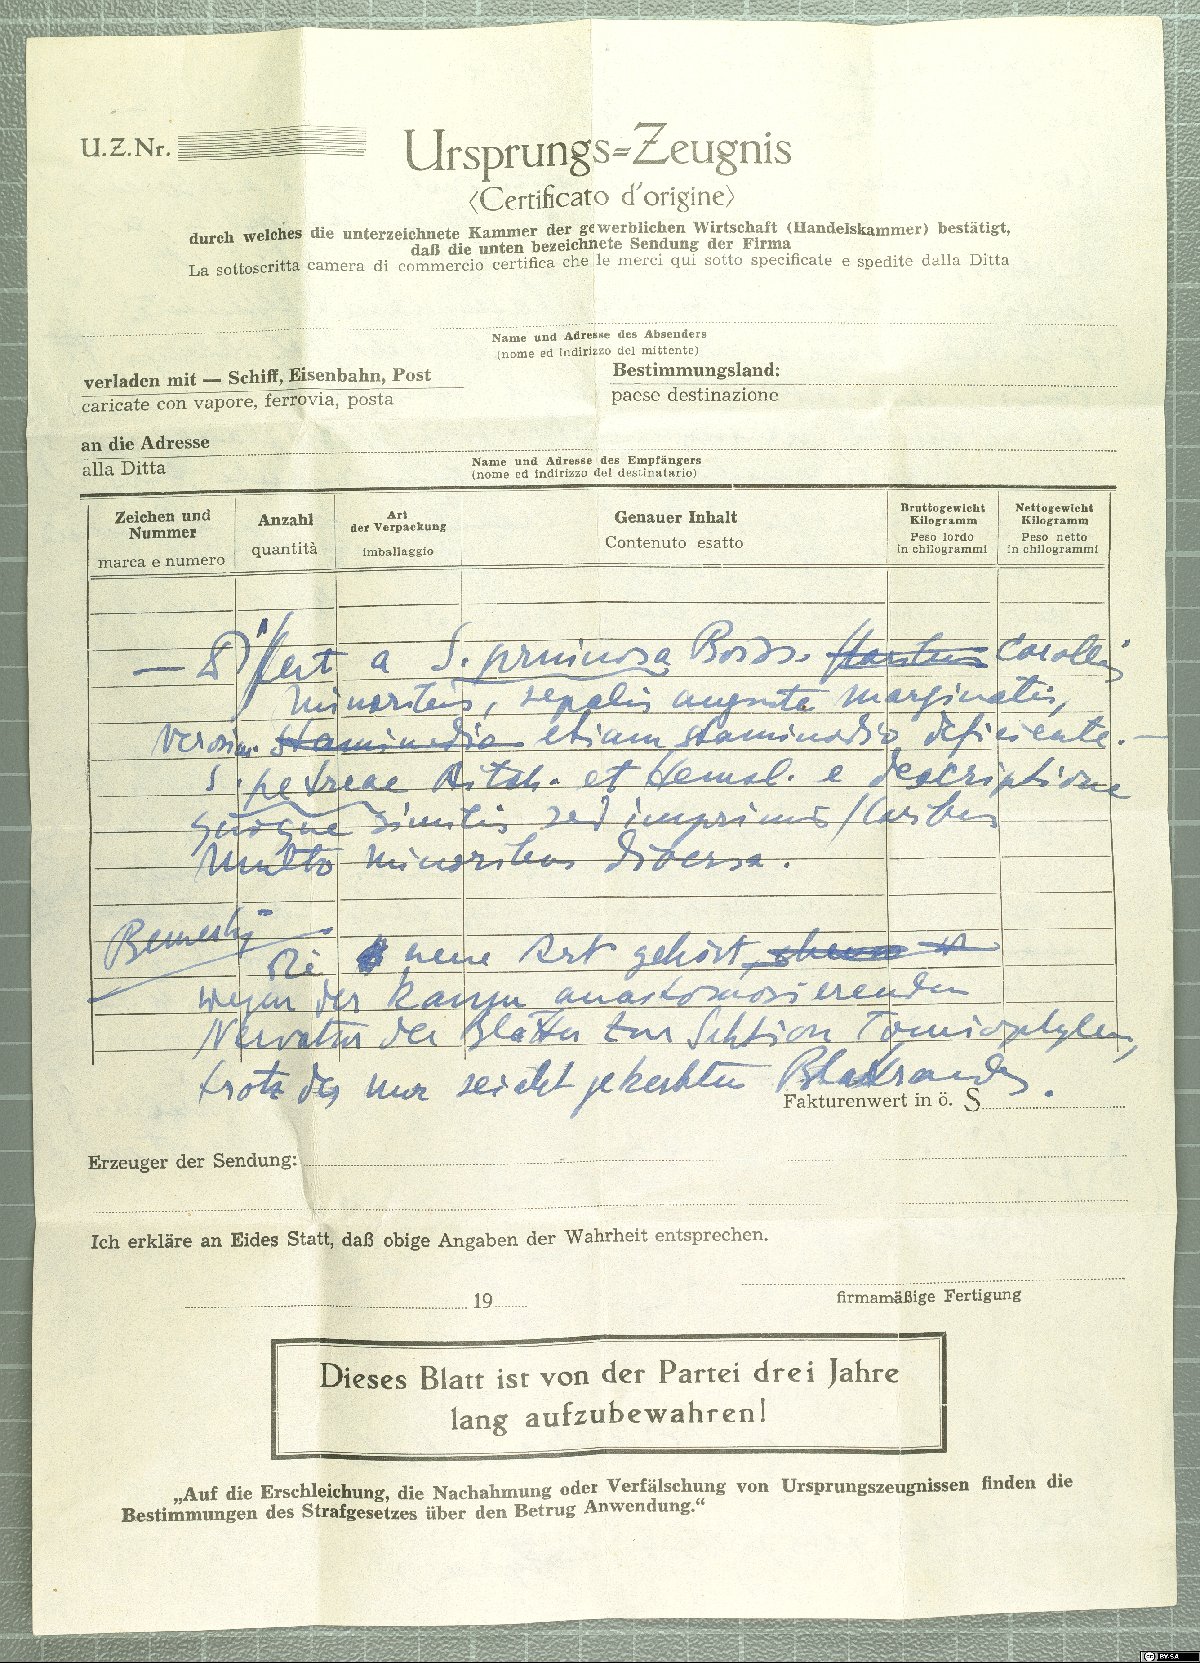 U.Z.Nr.
Ursprungs=Zeugnis
(Certificato d'origine)
durch welches die unterzeichnete Kammer der gewerblichen Wirtschaft (Handelskammer) bestätigt,
daß die unten bezeichnete Sendung der Firma
La sottoscritta camera di commercio certifica che le merci qui sotto specificate e spedite dalla Ditta
Name und Adresse des Absenders
(nome ed indirizzo del mittente)
verladen mit — Schiff, Eisenbahn, Post
caricate con vapore, ferrovia, posta
Bestimmungsland:
paese destinazione
an die Adresse
alla Ditta
Name und Adresse des Empfängers
(nome ed indirizzo del destinatario)
Zeichen und
Nummer
marca e numero
Anzahl
quantità
Art
der Verpackung
imballaggio
Genauer Inhalt
Contenuto esatto
Bruttogewicht
Kilogramm
Peso lordo
in chilogrammi
Nettogewicht
Kilogramm
Peso netto
in chilogrammi
— Differt a S. pruinosa Boiss. corollis
minoribus, sepalis anguste marginatis,
verosim. staminodio etiam staminodio deficiente. —
S. petreae Aitch. et Hemsl. e descriptione
quoque similis sed imprimis floribus
multo minoribus diversa.
Bemerkg
Die neue Art gehört
wegen der kaum anastomosierenden
Nervatur der Blätter zur Sektion Tomiophyllum,
trotz des nur seicht gekerbten Blattrandes.
Fakturenwert in ö. S
Erzeuger der Sendung:
Ich erkläre an Eides Statt, daß obige Angaben der Wahrheit entsprechen.
19
firmamäßige Fertigung
Dieses Blatt ist von der Partei drei Jahre
lang aufzubewahren!
„Auf die Erschleichung, die Nachahmung oder Verfälschung von Ursprungszeugnissen finden die
Bestimmungen des Strafgesetzes über den Betrug Anwendung."
CC BY-SA